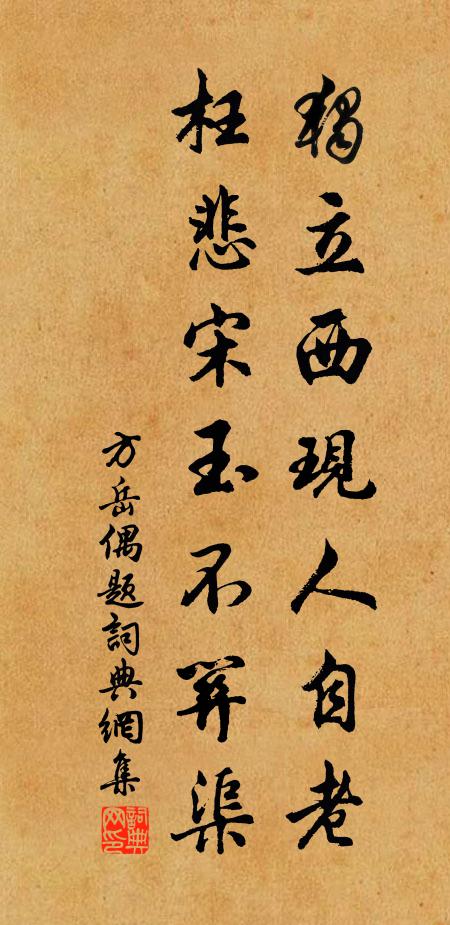 獨立西現人自老
枉悲宋玉不關渠
方岳偶題詞典網集
詞典
网印